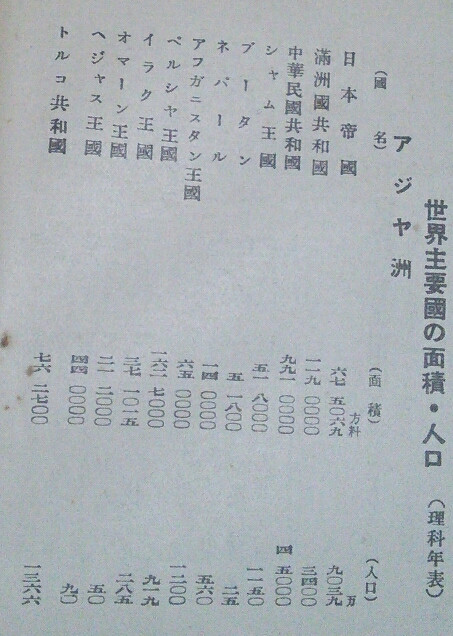 世界主要國の面積・人口 (理科年表)
アジヤ洲
(國名) (面積) (人口)
方粁 万
日本帝國 六七五〇六九 九〇三九
滿洲國共和國 一一九〇〇〇〇 三四〇〇
中華民國共和國 九九一〇〇〇〇 四五〇〇〇
シャム王國 五一八〇〇〇 一一五〇
ブータン 五一八〇〇 二五
ネパール 一四〇〇〇〇 五六〇
アフガニスタン王國 六五〇〇〇〇 一二〇〇
ペルシヤ王國 一六二七〇〇〇 九一九
イラク王國 三七一〇一五 二八五
オマーン王國 二一二〇〇〇 五〇
ヘジャス王國 四四〇〇〇〇 九〇
トルコ共和國 七六二七〇〇 一三六六